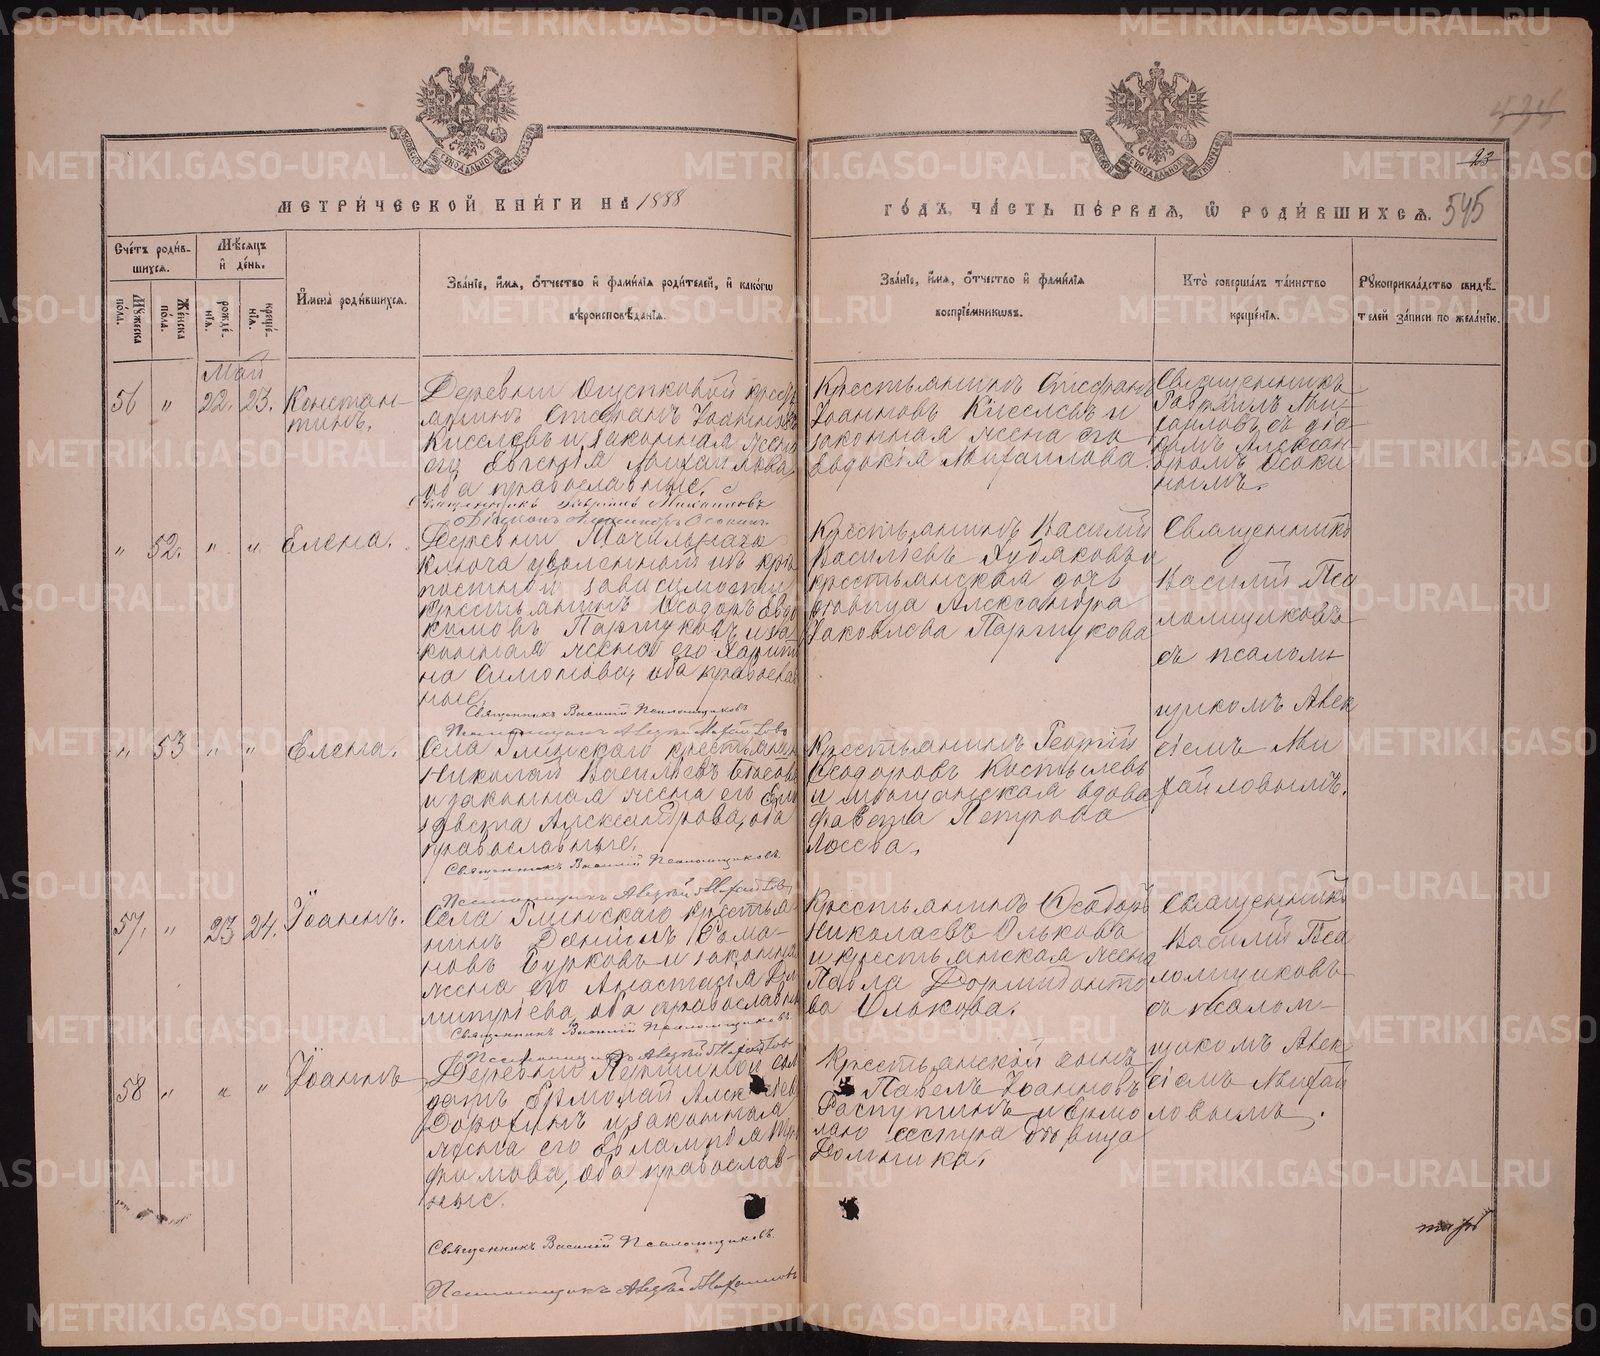 МЕТРИ́ЧЕСКОЙ КНИ́ГИ НА 1888
ГО́ДЪ, ЧА́СТЬ ПЕ́РВАЯ, Ѡ҆ РОДИ́ВШИХСЯ.
545
23
Сче́тъ роди́в-
шихся.
Мѣ́сяцъ
и҆ де́нь.
Му́жеска
по́ла.
Же́нска
по́ла.
рожде́-
нїя.
креще́-
нїя.
И҆мена̀ роди́вшихся.
Зва́нїе, и҆́мя, ѻ҆́тчество и҆ фами́лїя роди́телей, и҆ како́гѡ
вѣроисповѣ́данїя.
Зва́нїе, и҆́мя, ѻ҆́тчество и҆ фами́лїя
воспрїе́мникѡвъ.
Кто̀ соверша́лъ та́инство
креще́нїя.
Рꙋкоприкла́дство свидѣ́-
телей за́писи по жела́нїю.
Май
56 " 22. 23. Констан-
тинъ.
Деревни крест
янинъ Стефанъ Іоанновъ
Киселевъ и законная жена
его Евгенія Михаилова
оба православные.
Священникъ Гавріилъ Михаиловъ
Діаконъ Александръ Осокинъ
Крестьянинъ Стефанъ
Іоанновъ Киселевъ и
законная жена его
Евдокія Михаилова.
Священникъ
Гавріилъ Ми-
хаиловъ съ діа
кономъ Алексан
дромъ Осоки
нымъ.
" 52. " " Елена.
Деревни Мочильнаго
ключа уволенный изъ крѣ
постной зависимости
крестьянинъ Ѳеодоръ Евдо
кимовъ Паршуковъ и за
конная жена его Харити
на Симонова, оба православ
ные.
Священникъ Василій Псаломщиковъ
Псаломщикъ Авксій Михайловъ
Крестьянинъ Василій
Васильевъ Худяковъ и
крестьянская дочь
дѣвица Александра
Іаковлева Паршукова
Священникъ
Василій Пса
ломщиковъ
съ псаломъ
щикомъ Авк
сіемъ Ми
хайловымъ.
" 53 " " Елена.
Села Глинскаго крестьянинъ
Николай Васильевъ
и законная жена его
Александрова, оба
православные.
Священникъ Василій Псаломщиковъ.
Псаломщикъ Авксій Михайловъ
Крестьянинъ Георгій
Ѳеодоровъ Костылевъ
и мѣщанская вдова
Петрова
Лосева.
57. " 23 24. Іоаннъ.
Села Глинскаго крестья
нинъ Даніилъ Рома-
новъ Бурковъ и законная
жена его Анастасія Ди
митріева, оба православные
Священникъ Василій Псаломщиковъ.
Псаломщикъ Авксій Михайловъ
Крестьянинъ Ѳеодоръ
Николаевъ Ольковъ
и крестьянская жена
Павла Дормидонто
ва Олькова.
Священникъ
Василій Пса
ломщиковъ
съ псалом-
щикомъ Авк-
сіемъ Михай
ловымъ.
58 " " " Іоаннъ
Деревни Першиной сол
датъ Ермолай Алексѣевъ
Дорохинъ и законная
жена его Евлампія Тро
фимова, оба православ-
ные.
Священникъ Василій Псаломщиковъ.
Псаломщикъ Авксій Михайловъ
Крестьянской сынъ
Павелъ Іоанновъ
Распутинъ и Ермо
лаю сестра дѣвица
Домника.
METRIKI.GASO-URAL.RU